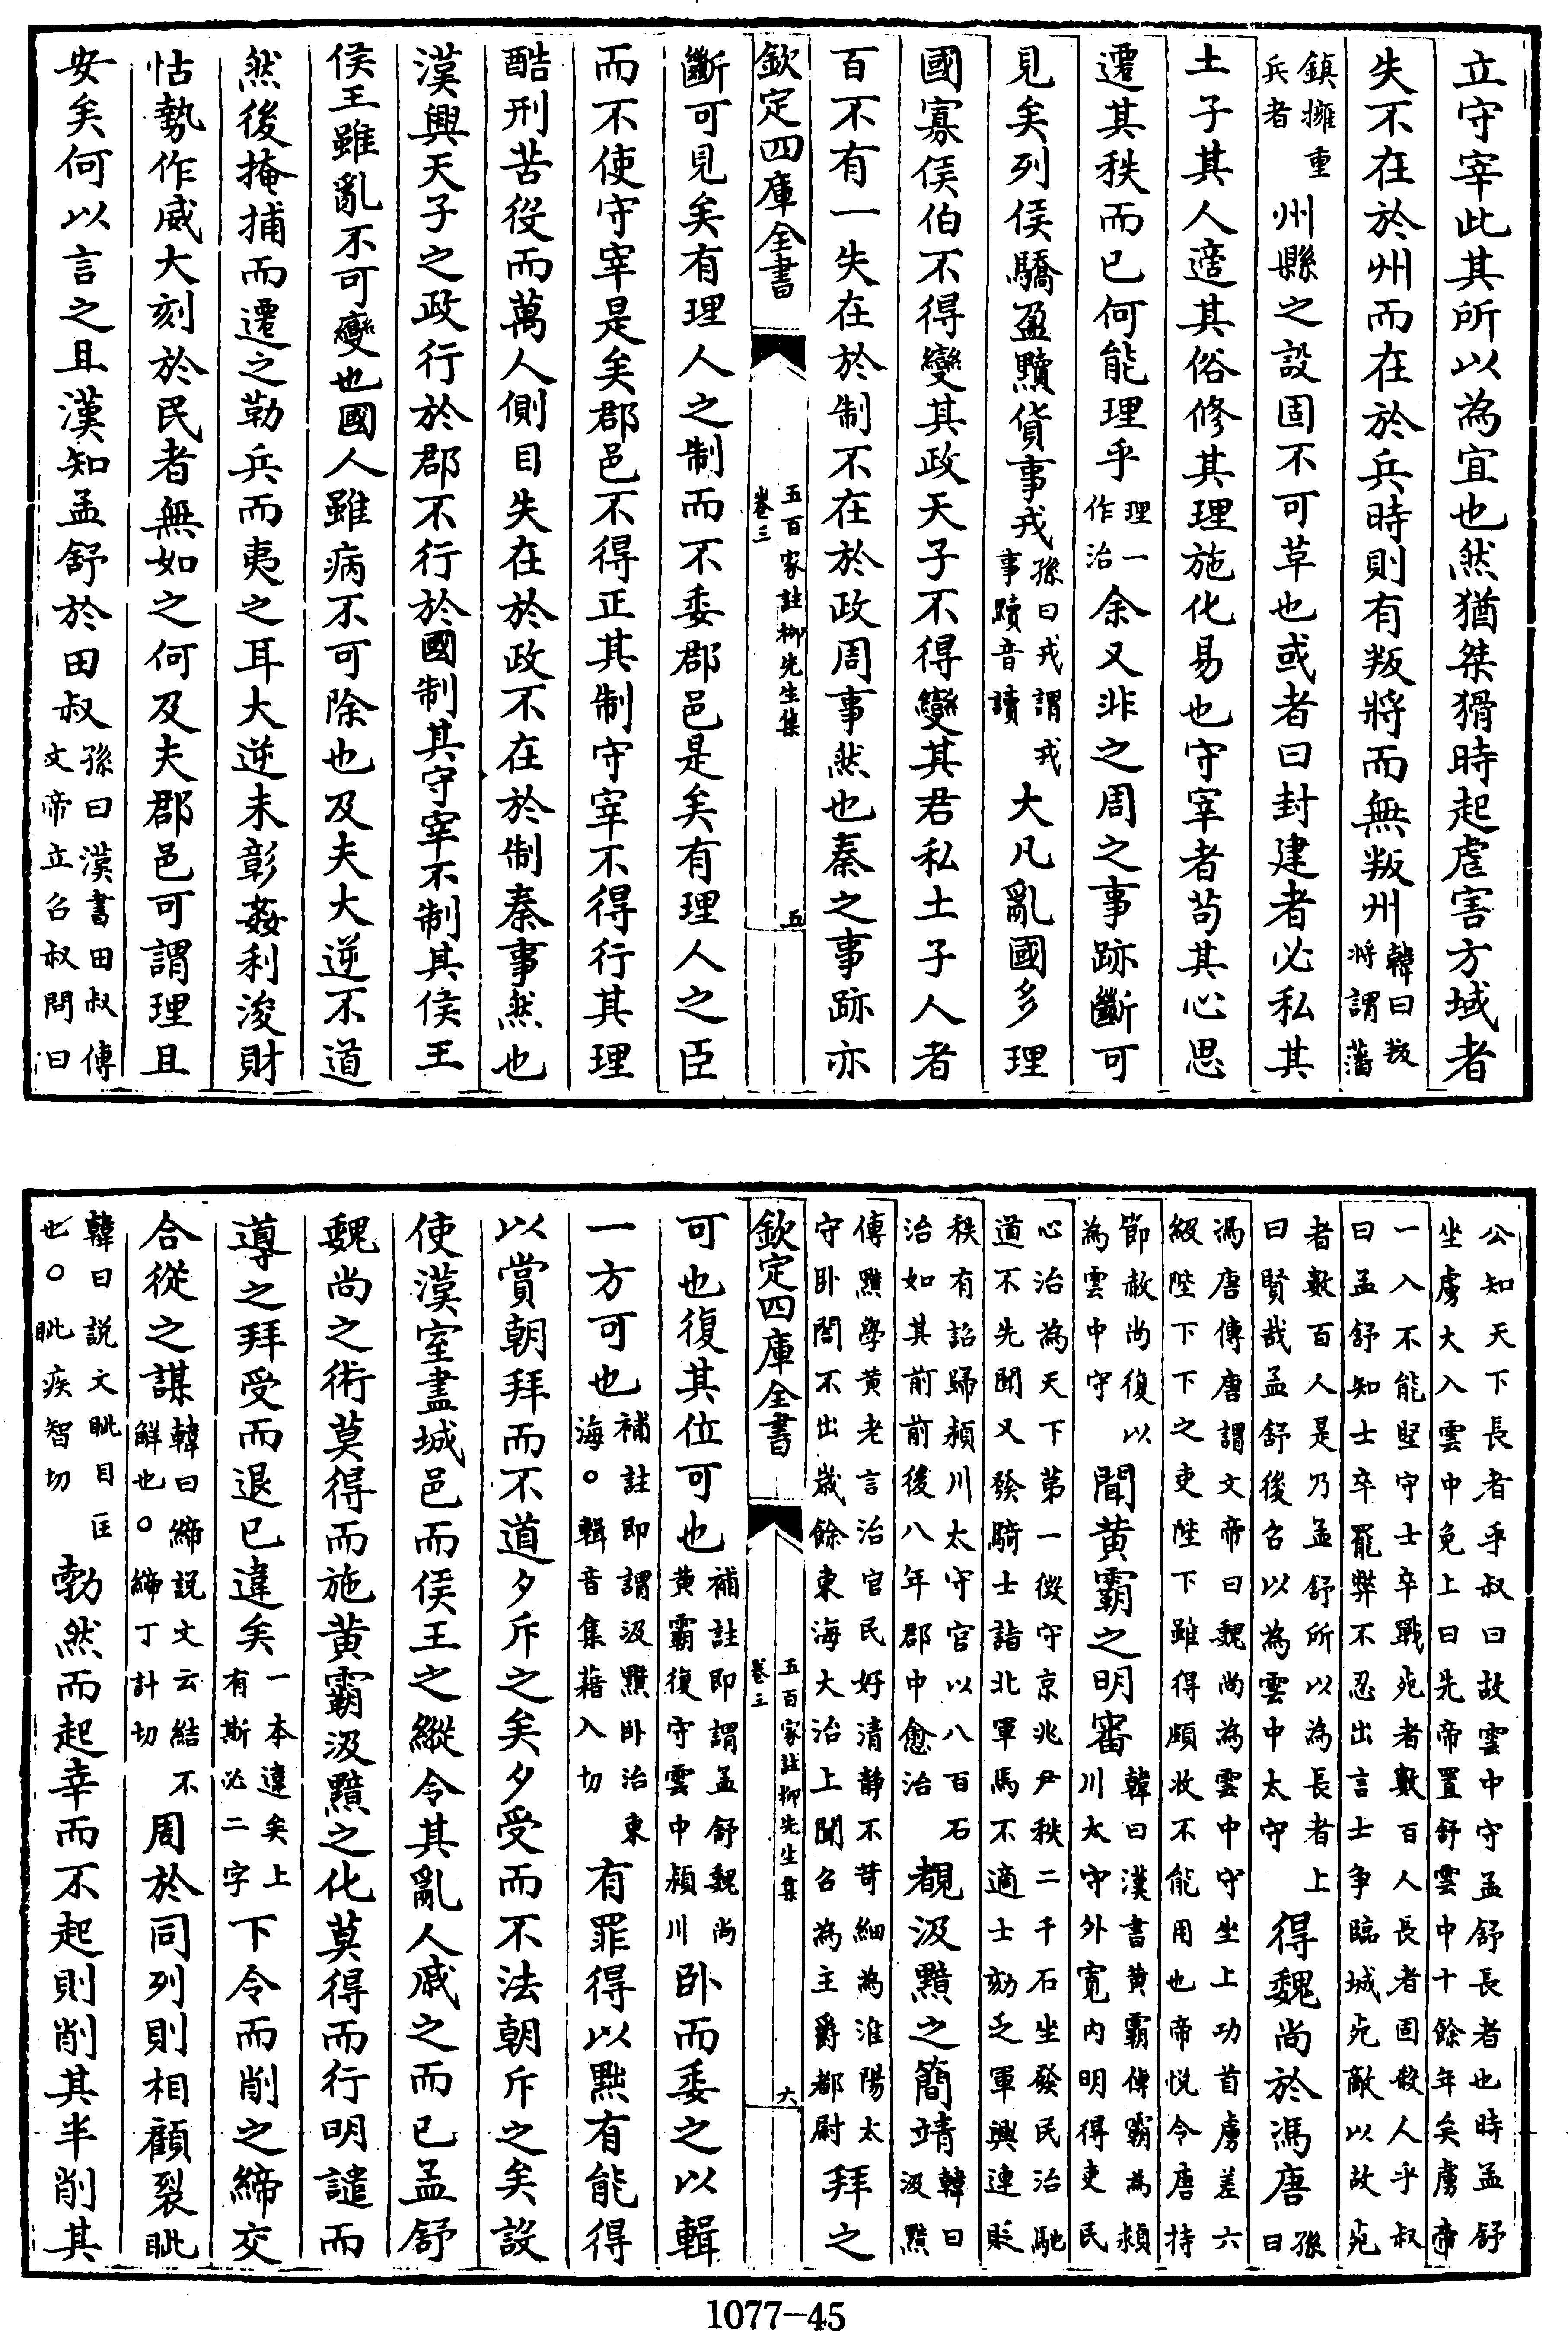 立守宰此其所以為宜也然猶桀猾時起虐害方域者
失不在於州而在於兵時則有叛將而無叛州韓曰叛將謂藩
鎮擁重兵者州縣之設固不可草也或者曰封建者必私其
土子其人適其俗修其理施化易也守宰者苟其心思
遷其秩而已何能理乎理一作治余又非之周之事跡斷可
見矣列侯驕盈黷貨事戎孫曰戎謂戎事黷音讀大凡亂國多理
國寡侯伯不得變其政天子不得變其君私土子人者
百不有一失在於制不在於政周事然也秦之事跡亦
欽定四庫全書
五百家註柳先生集
卷三
五
斷可見矣有理人之制而不委郡邑是矣有理人之臣
而不使守宰是矣郡邑不得正其制守宰不得行其理
酷刑苦役而萬人側目失在於政不在於制秦事然也
漢興天子之政行於郡不行於國制其守宰不制其侯王
侯王雖亂不可變也國人雖病不可除也及夫大逆不道
然後掩捕而遷之勒兵而夷之耳大逆未彰姦利浚財
怙勢作威大刻於民者無如之何及夫郡邑可謂理且
安矣何以言之且漢知孟舒於田叔孫曰漢書田叔傳文帝立召叔問曰
公知天下長者乎叔曰故雲中守孟舒長者也時孟舒
坐虜大入雲中免上曰先帝置舒雲中十餘年矣虜帝
一入不能堅守士卒戰死者數百人長者固殺人乎叔
曰孟舒知士卒罷弊不忍出言士爭臨城死敵以故死
者數百人是乃孟舒所以為長者上
曰賢哉孟舒後召以為雲中太守得魏尚於馮唐孫曰
馮唐傳唐謂文帝曰魏尚為雲中守坐上功首虜差六
級陛下下之吏陛下雖得頗牧不能用也帝悅令唐持
節赦尚復以為雲中守聞黃霸之明審韓曰漢書黃霸傳霸為潁川太守外寬內明得吏民
心治為天下第一徵守京兆尹秩二千石坐發民治馳
道不先聞又發騎士詣北軍馬不適士劾乏軍興連貶
秩有詔歸潁川太守官以八百石
治如其前前後八年郡中愈治覩汲黯之簡靖韓曰汲黯
傳黯學黃老言治官民好清靜不苛細為淮陽太
守卧閤不出歲餘東海大治上聞召為主爵都尉拜之
欽定四庫全書
五百家註柳先生集
卷三
六
可也復其位可也補註即謂孟舒魏尚黃霸復守雲中潁川卧而委之以輯
一方可也補註即謂汲黯卧治東海○輯音集藉入切有罪得以黜有能得
以賞朝拜而不道夕斥之矣夕受而不法朝斥之矣設
使漢室盡城邑而侯王之縱令其亂人戚之而已孟舒
魏尚之術莫得而施黃霸汲黯之化莫得而行明譴而
導之拜受而退已違矣一本違矣上有斯必二字下令而削之締交
合從之謀韓曰締說文云結不解也○締丁計切周於同列則相顧裂眦
韓曰說文眦目匡也○眦疾智切勃然而起幸而不起則削其半削其
1077-45